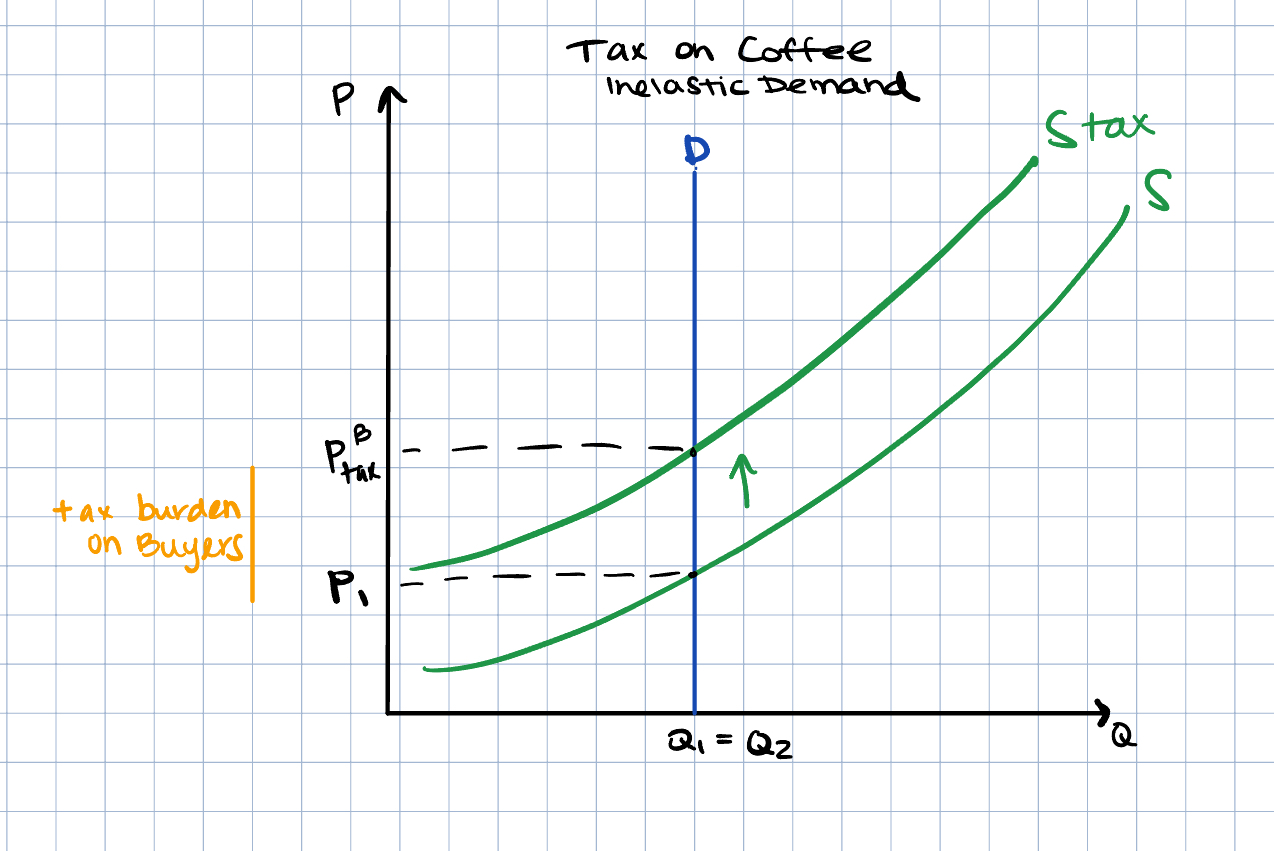 Tax on Coffee
Inelastic Demand
P
D
S tax
S
P tax B
tax burden
on Buyers
P1
Q1 = Q2
Q